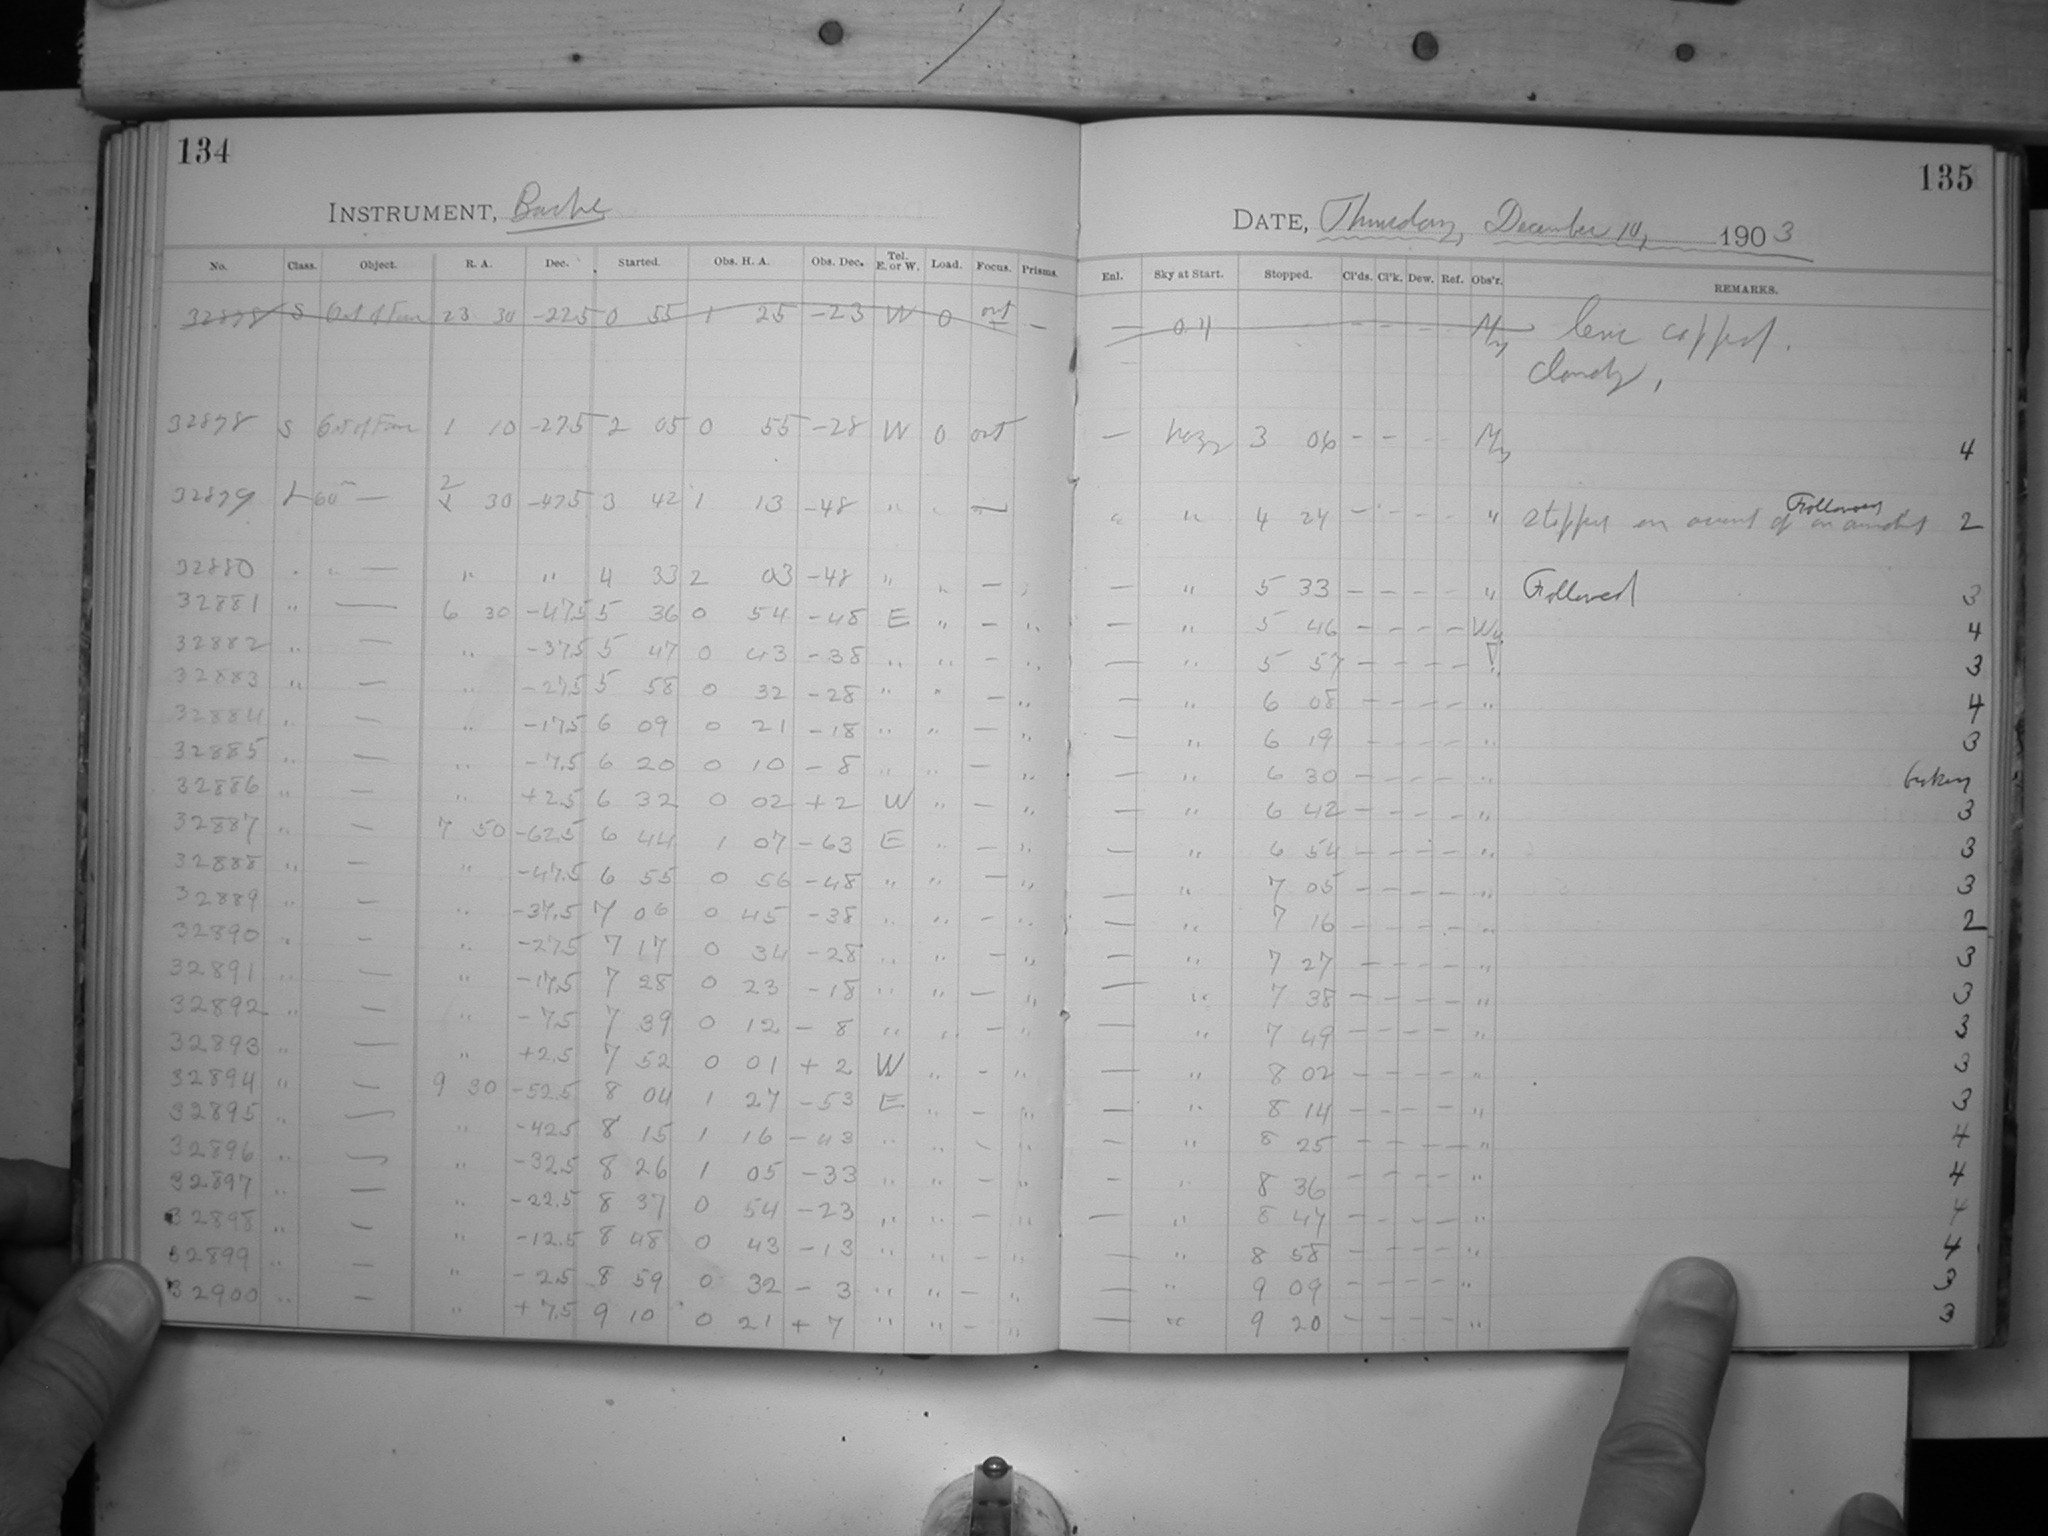 134
INSTRUMENT, Bache
No. Class. Object. R. A. Dec. Started. Obs. H. A. Obs. Dec. Tel. E. or W. Load. Focus. Prisms.
32878 S Out of Focus 23 30 -22.5 0 55 1 25 -23 W 0 out —
32878 S Out of Focus 1 10 -27.5 2 05 0 55 -28 W 0 out
32879 L 60m — 2 30 -47.5 3 42 1 13 -48 " " —
32880 " " — " " 4 33 2 03 -48 " " — "
32881 " — 6 30 -47.5 5 36 0 54 -48 E " — "
32882 " — " -37.5 5 47 0 43 -38 " " — "
32883 " — " -27.5 5 58 0 32 -28 " " — "
32884 " — " -17.5 6 09 0 21 -18 " " — "
32885 " — " -7.5 6 20 0 10 -8 " " — "
32886 " — " +2.5 6 32 0 02 +2 W " — "
32887 " — 7 50 -62.5 6 44 1 07 -63 E " — "
32888 " — " -47.5 6 55 0 56 -48 " " — "
32889 " — " -37.5 7 06 0 45 -38 " " — "
32890 " — " -27.5 7 17 0 34 -28 " " — "
32891 " — " -17.5 7 28 0 23 -18 " " — "
32892 " — " -7.5 7 39 0 12 -8 " " — "
32893 " — " +2.5 7 52 0 01 +2 W " — "
32894 " — 9 30 -52.5 8 04 1 27 -53 E " — "
32895 " — " -42.5 8 15 1 16 -43 " " — "
32896 " — " -32.5 8 26 1 05 -33 " " — "
32897 " — " -22.5 8 37 0 54 -23 " " — "
32898 " — " -12.5 8 48 0 43 -13 " " — "
32899 " — " -2.5 8 59 0 32 -3 " " — "
32900 " — " +7.5 9 10 0 21 +7 " " — "
135
DATE, Thursday, December 10, 1903
Enl. Sky at Start. Stopped. Cl'ds. Cl'k. Dew. Ref. Obs'r. REMARKS.
— — — — My lens capped.
cloudy,
— hazy 3 06 — — — — My 4
" " 4 24 — — — — " stopped on account of Followed 2
— " 5 33 — — — — " Followed 3
— " 5 46 — — — — Wy. 4
— " 5 57 — — — — " 3
— " 6 08 — — — — " 4
— " 6 19 — — — — " 3
— " 6 30 — — — — " broken
— " 6 42 — — — — " 3
— " 6 54 — — — — " 3
— " 7 05 — — — — " 3
— " 7 16 — — — — " 2
— " 7 27 — — — — " 3
— " 7 38 — — — — " 3
— " 7 49 — — — — " 3
— " 8 02 — — — — " 3
— " 8 14 — — — — " 3
— " 8 25 — — — — " 4
— " 8 36 — — — — " 4
— " 8 47 — — — — " 4
— " 8 58 — — — — " 4
— " 9 09 — — — — " 3
— " 9 20 — — — — " 3